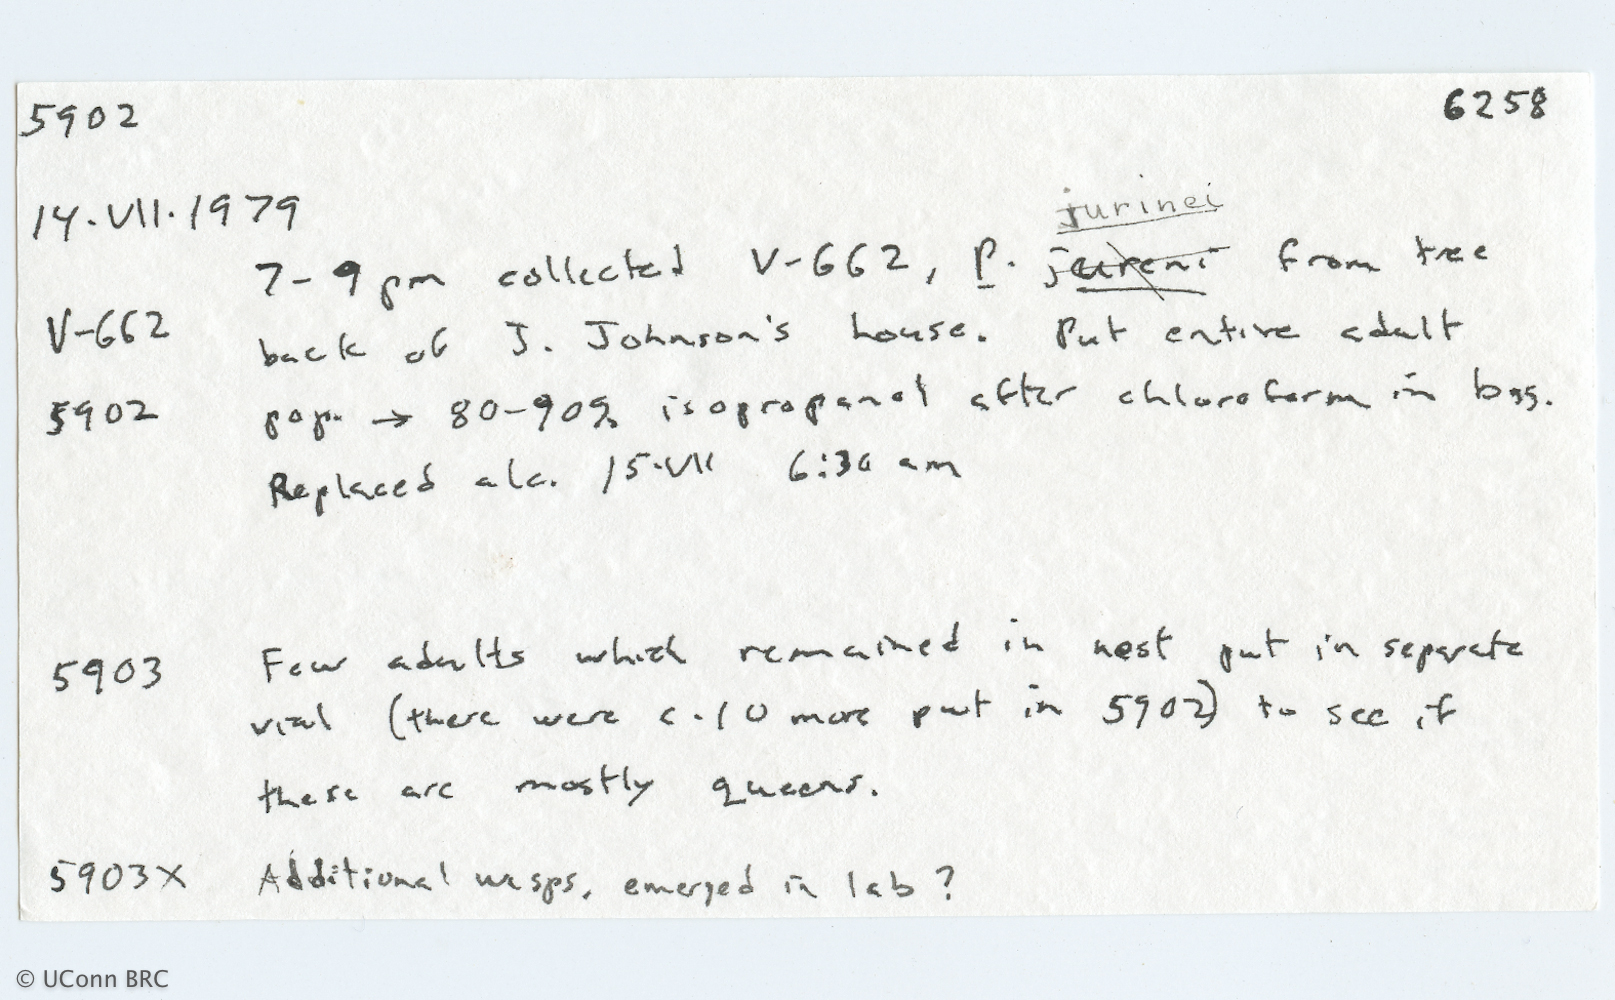 5902 6258
14.VII.1979
jurinei
7-9 pm collected V-662, P. jureni from tree
V-662 back of J. Johnson's house. Put entire adult
5902 pop. → 80-90% isopropanol after chloroform in bag.
Replaced alc. 15.VII 6:30 am
5903 Few adults which remained in nest put in separate
vial (there were c.10 more put in 5902) to see if
these are mostly queens.
5903X Additional wasps, emerged in lab?
© UConn BRC